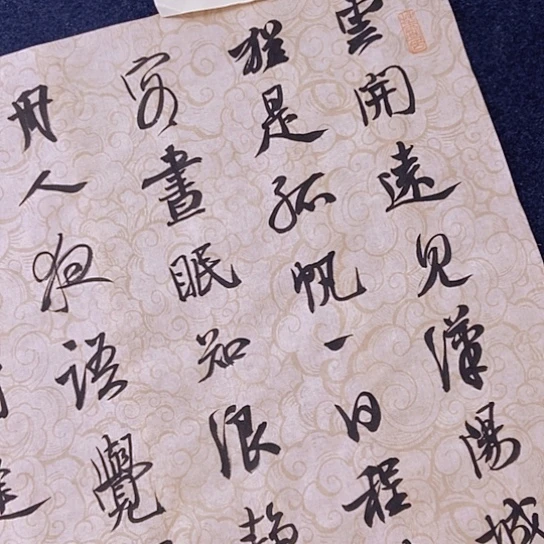 雲開遠見漢陽城
猶是孤帆一日程
客晝眠知浪静
舟人夜語覺